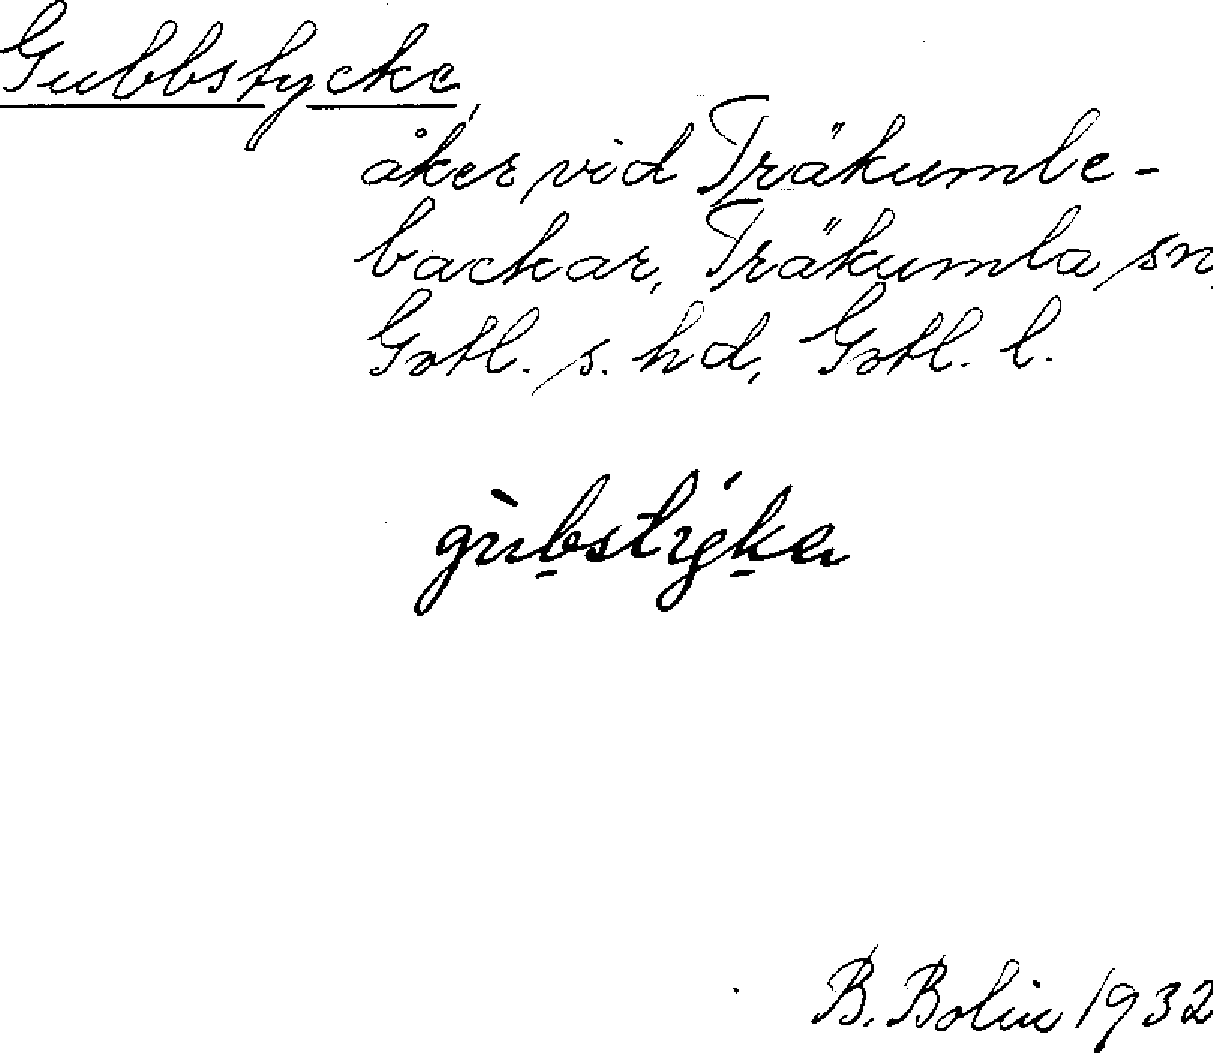 Gubbstycke,
åker vid Träkumle-
backar, Träkumla sn,
Gotl. s. hd, Gotl. l.
gùbstýka
B. Bolin 1932